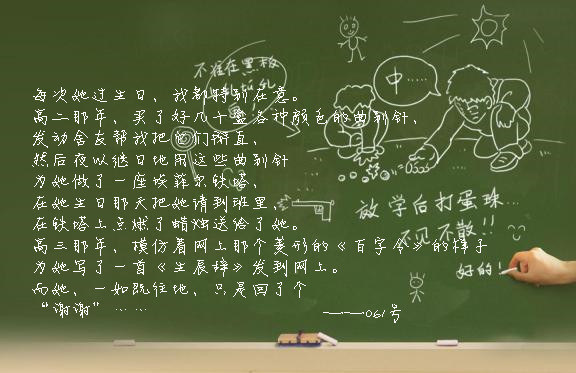 不准在黑板
乱
每次她过生日，我都特别在意。
高二那年，买了好几十盒各种颜色的曲别针，
发动舍友帮我把它们掰直，
然后夜以继日地用这些曲别针
为她做了一座埃菲尔铁塔，
在她生日那天把她请到班里，
在铁塔上点燃了蜡烛送给了她。
高三那年，模仿着网上那个菱形的《百字令》的样子
为她写了一首《生辰辞》发到网上。
而她，一如既往地，只是回了个
“谢谢”……
——061号
中……
放学后打蛋珠…
不见不散!!
好的!